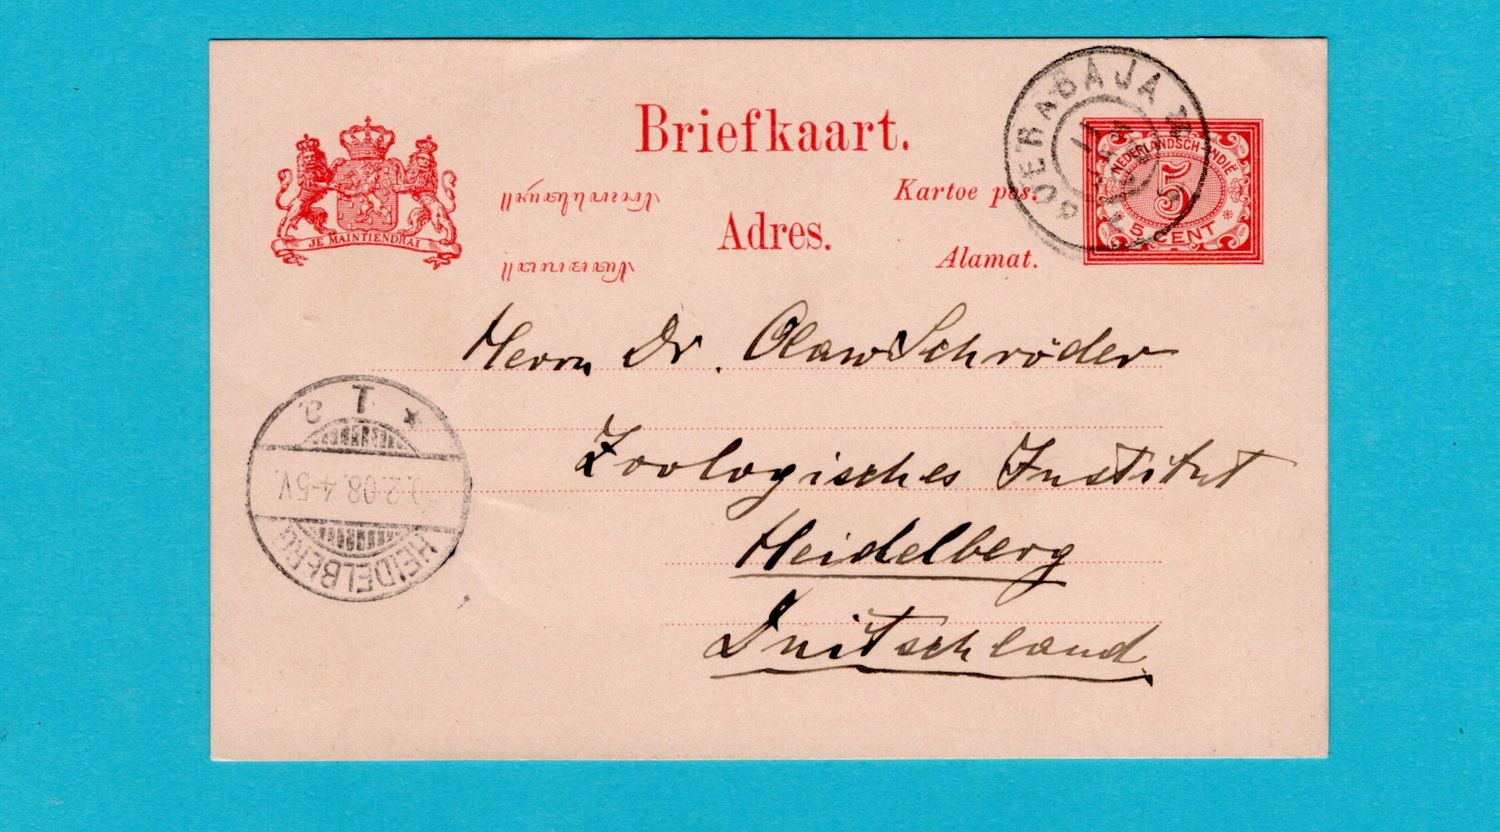 Briefkaart.
Kartoe pos.
Adres.
Alamat.
JE MAINTIENDRAI
SOERABAJA
NEDERLANDSCH-INDIË
5
5 CENT
Herrn Dr. Olaw Schröder
Zoologisches Institut
Heidelberg
Duitschland
HEIDELBERG
.2.08.4-5V.
* 1